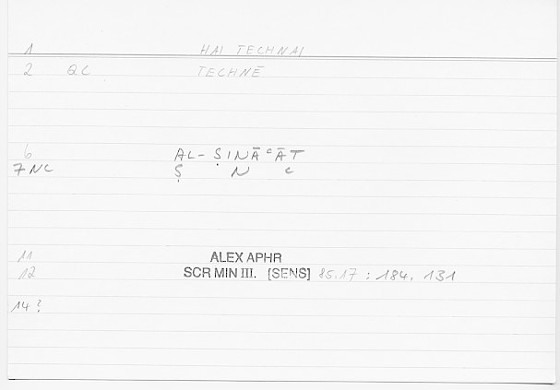 1 HAI TECHNAI
2 QC TECHNĒ
6 AL-ṢINĀᶜĀT
7 NC Ṣ N ᶜ
11 ALEX APHR
12 SCR MIN III. [SENS] 85.17 : 184. 131
14 ?